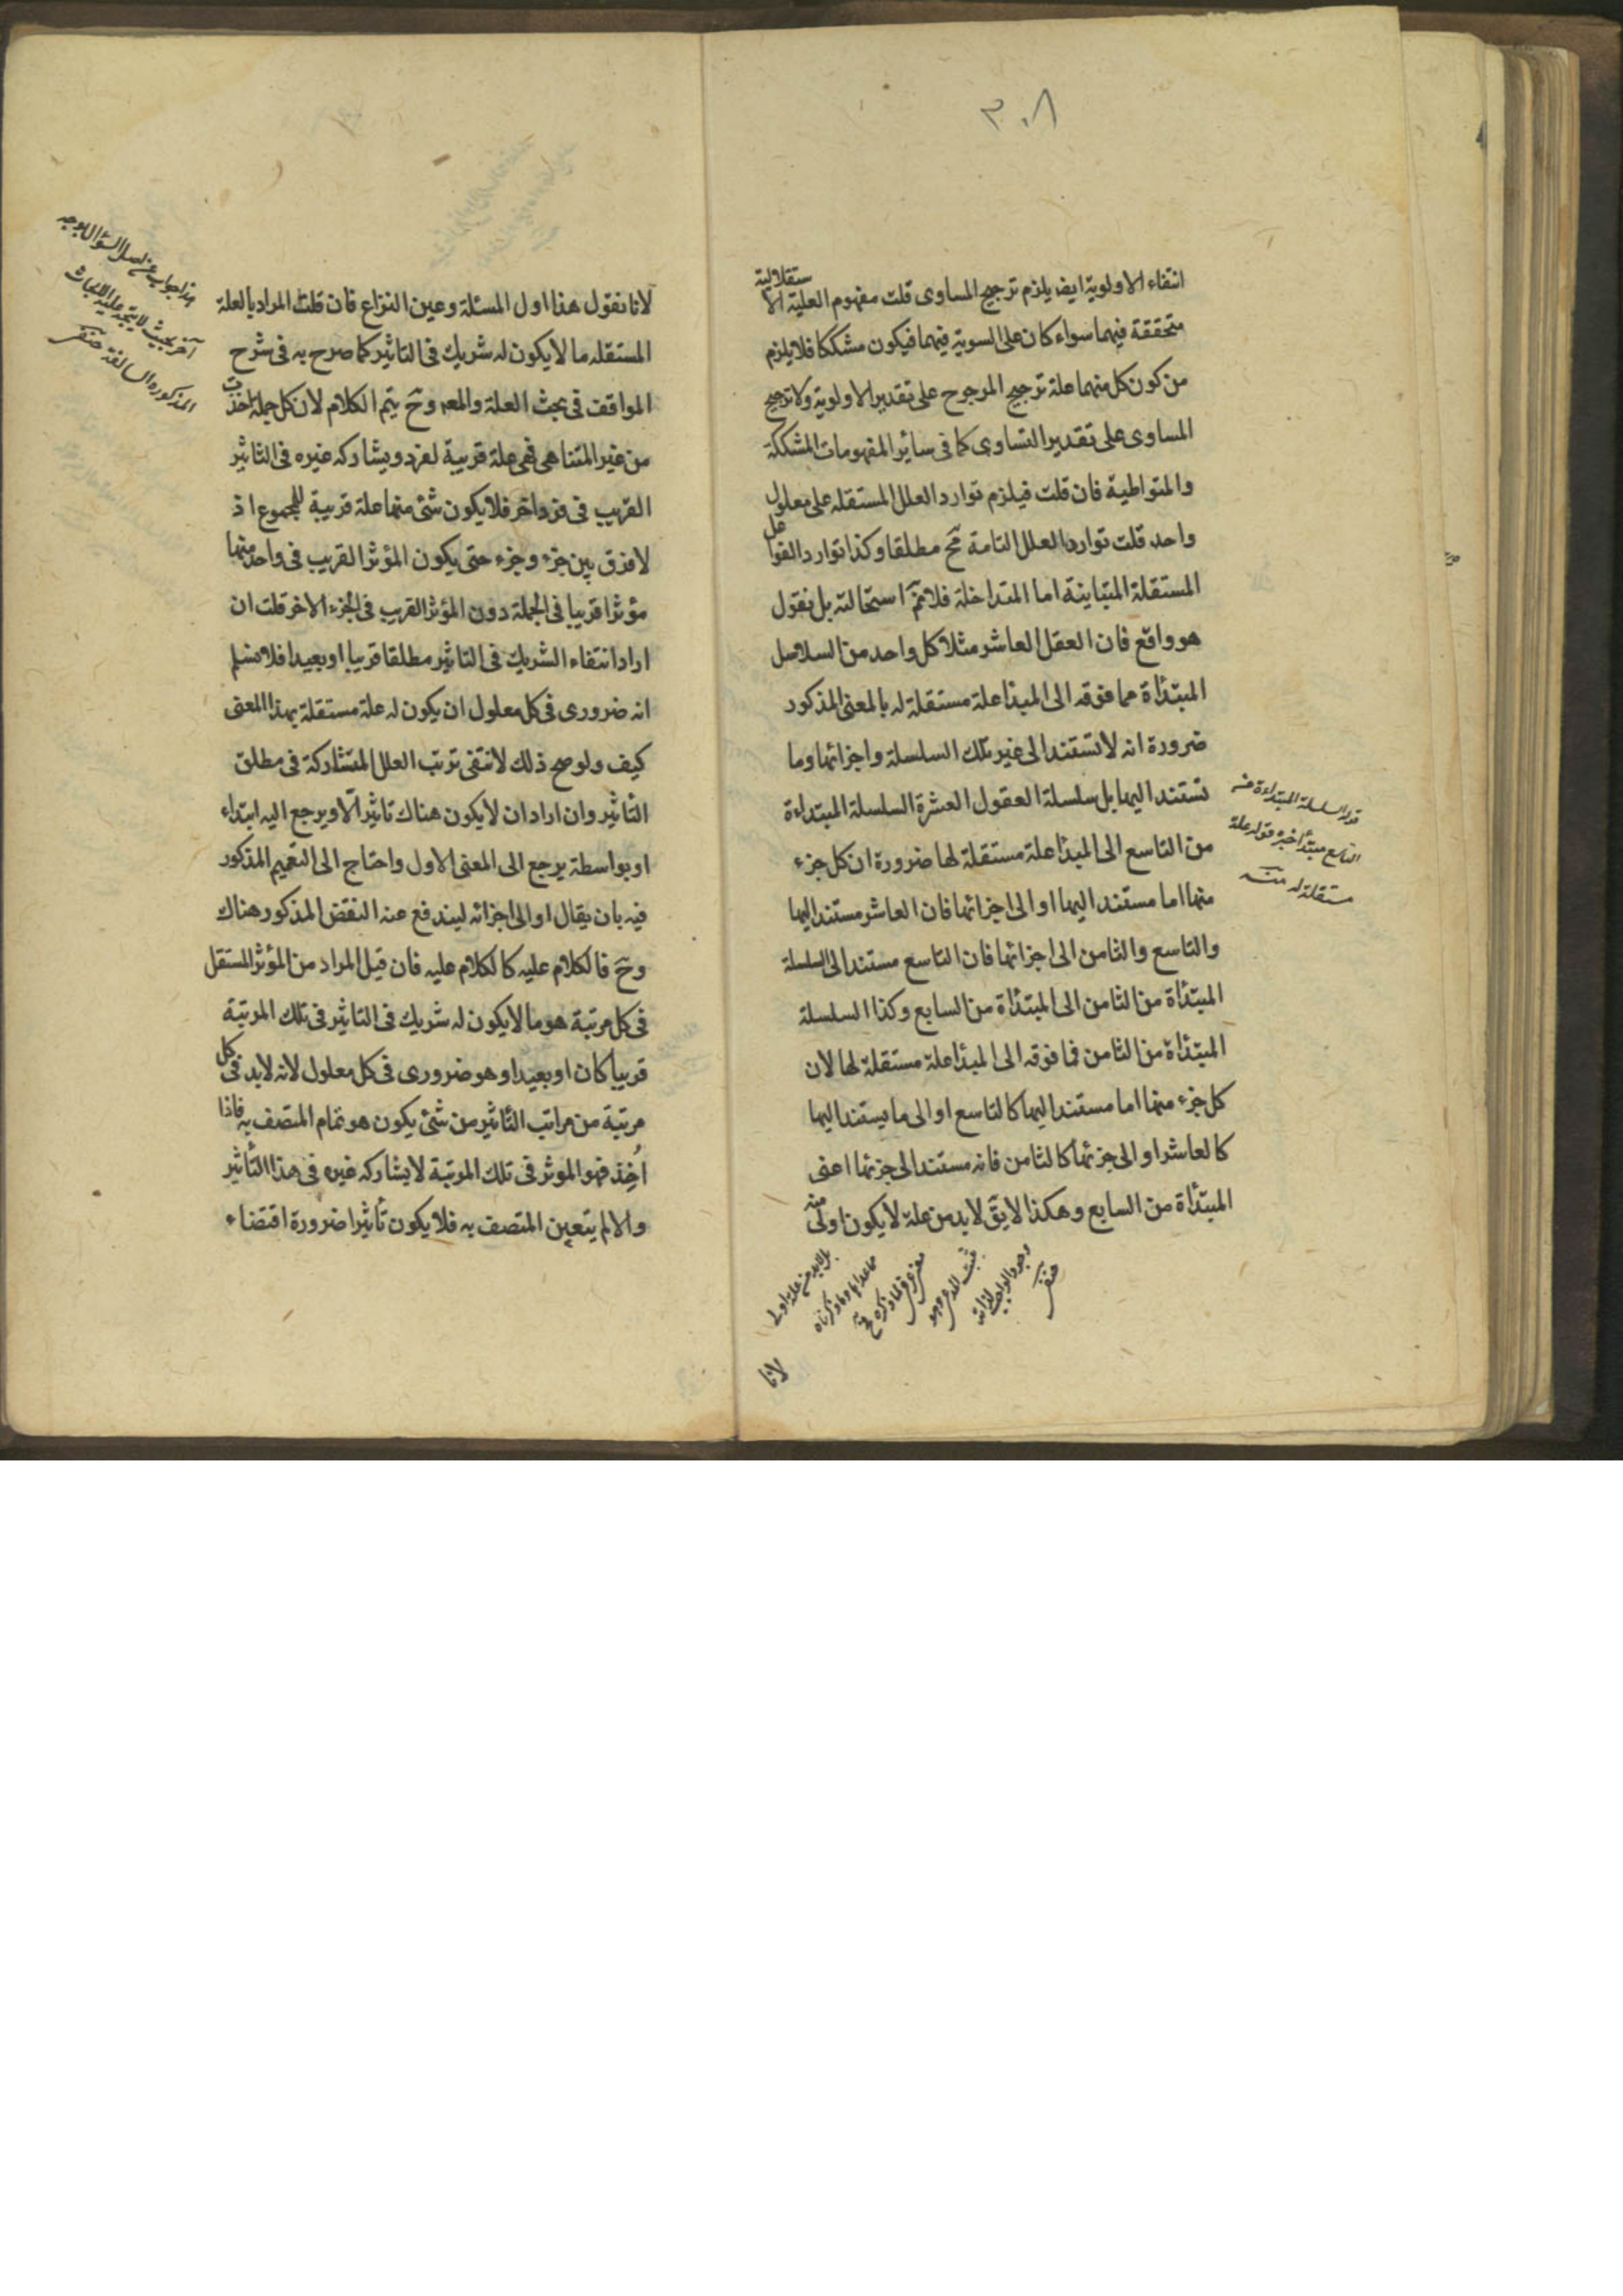 ٣٠٨
انتفاء الاولوية ايض يلزم ترجيح المساوى قلت مفهوم العلية الاستقلالية
متحققة فيهما سواء كان على السوية فيهما فيكون مشككا فلا يلزم
من كون كل منهما علة ترجيح المرجوح على تقدير الاولوية ولا ترجيح
المساوى على تقدير التساوى كما فى سائر المفهومات المشككة
والمتواطية فان قلت فيلزم توارد العلل المستقله على معلول
واحد قلت توارد العلل التامة مح مطلقا وكذا توارد الفواعل
المستقلة المتباينة اما المتداخلة فلا نم استحالته بل نقول
هو واقع فان العقل العاشر مثلا كل واحد من السلاسل
المبتدأة مما فوقه الى المبدأ علة مستقلة له بالمعنى المذكور
ضرورة انه لا تستند الى غير تلك السلسلة واجزائها وما
تستند اليها بل سلسلة العقول العشرة السلسلة المبتداءة
من التاسع الى المبدأ علة مستقلة لها ضرورة ان كل جزء
منها اما مستند اليها او الى اجزائها فان العاشر مستند اليها
والتاسع والثامن الى اجزائها فان التاسع مستند الى السلسلة
المبتدأة من الثامن الى المبتدأة من السابع وكذا السلسلة
المبتدأة من الثامن فما فوقه الى المبدأ علة مستقلة لها لان
كل جزء منها اما مستند اليها كالتاسع او الى ما يستند اليها
كالعاشر او الى جزئها كالثامن فانه مستند الى جزئها اعنى
المبتدأة من السابع وهكذا لا يق لابد من علة لا يكون اولى منه
قوله السلسلة المبتداءة من
التاسع مبتدأ خبره قوله علة
مستقلة له منه
بل لابد من علة اولى
مما عداها وما ذكرناه
وجود الواجب لذاته
لانا
لانا نقول هذا اول المسئلة وعين النزاع فان قلت المراد بالعلة
المستقله ما لا يكون له شريك فى التاثير كما صرح به فى شرح
المواقف فى بحث العلة والمعه وح يتم الكلام لان كل جملة اخذت
من غير المتناهى فهى علة قريبة لفرد ويشاركه غيره فى التاثير
القريب فى فرد اخر فلا يكون شئ منها علة قريبة للمجموع اذ
لا فرق بين جزء وجزء حتى يكون المؤثر القريب فى واحد منها
مؤثرا قريبا فى الجملة دون المؤثر القريب فى الجزء الاخر قلت ان
اراد انتفاء الشريك فى التاثير مطلقا قريبا او بعيدا فلا نسلم
انه ضرورى فى كل معلول ان يكون له علة مستقلة بهذا المعنى
كيف ولو صح ذلك لانتفى ترتب العلل المتشاركة فى مطلق
التأثير وان اراد ان لا يكون هناك تاثير الا ويرجع اليه ابتداء
او بواسطة يرجع الى المعنى الاول واحتاج الى التعميم المذكور
فيه بان يقال او الى اجزائه ليندفع عنه النقض المذكور هناك
وح فالكلام عليه كالكلام عليه فان قيل المراد من المؤثر المستقل
فى كل مرتبة هو ما لا يكون له شريك فى التاثير فى تلك المرتبة
قريبا كان او بعيدا وهو ضرورى فى كل معلول لانه لابد فى كل
مرتبة من مراتب التاثير من شئ يكون هو تمام المتصف به فاذا
اُخِذ فهو الموثر فى تلك المرتبة لا يشاركه غيره فى هذا التأثير
والا لم يتعين المتصف به فلا يكون تأثيرا ضرورة اقتضاء
هذا جواب عن اصل السؤال بوجه
آخر بحيث لا يتجه عليه الابحاث
المذكورة السالفة